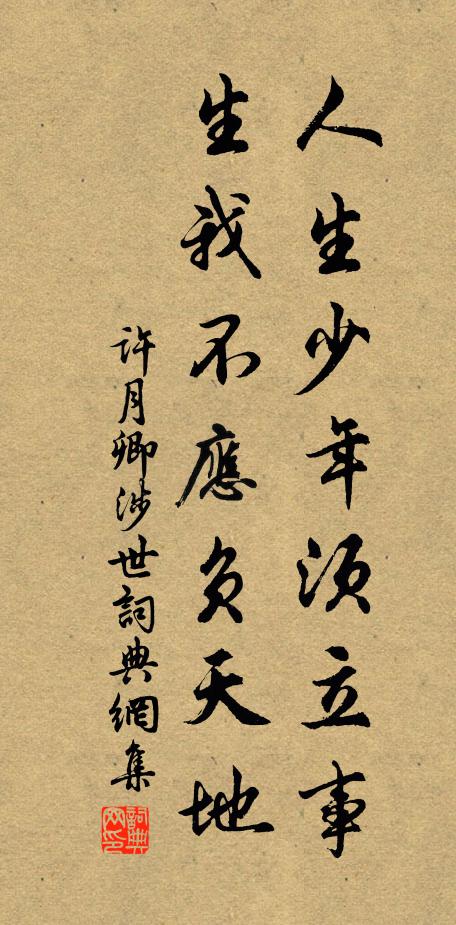 人生少年須立事
生我不應負天地
許月卿涉世詞典網集
詞典网印